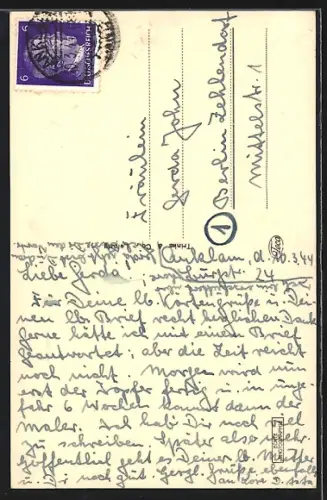 6 6
Fräulein
Gerda John
1 Berlin Zehlendorf
Mittelstr. 1
Trinks &
Anklam, d. 20.3.44
24
Liebe Gerda!
Für Deine lb. Kartengrüße u. Dei-
nen lb. Brief recht herzlichen Dank
Gerne hätte ich mit einem Brief
geantwortet; aber die Zeit reicht
noch nicht. Morgen wird nun
erst der Töpfer fertig u. in unge-
fähr 6 Wochen kommt dann der
Maler. Ach hab' Dir noch viel
zu schreiben. Später also mehr.
Hoffentlich geht es Deiner lb. Mutter
u. Dir noch gut. Herzl. Grüße, ebenfalls